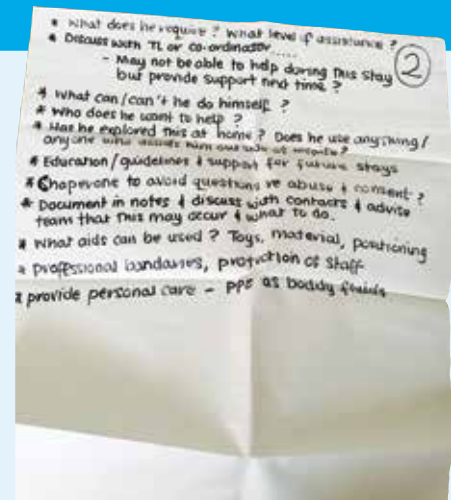 * What does he require? What level of assistance?
* Discuss with TL or co-ordinator.....
- May not be able to help during this stay
but provide support next time?
2
* What can/can't he do himself?
* Who does he want to help?
* Has he explored this at home? Does he use anything/
anyone who assists him outside of
* Education/guidelines & support for future stays
* Chaperone to avoid questions re abuse & consent?
* Document in notes & discuss with contacts & advise
team that this may occur & what to do.
* What aids can be used? Toys, material, positioning
* professional boundaries, protection of staff
* provide personal care - PPE as boddy fluids